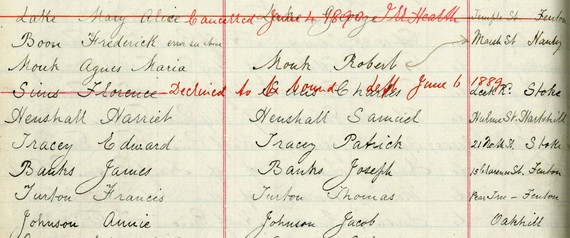 Lake Mary Alice Cancelled June 4 1890 Ill Health Temple St. Fenton
Boon Frederick Marsh St Hanley
Monk Agnes Maria Monk Robert
Sims Florence Declined to be bound Left June 6 1889 Sims Charles Leek Rd. Stoke
Henshall Harriet Henshall Samuel Hulme St. Hartshill
Tracey Edward Tracey Patrick 21 Stoke
Banks James Banks Joseph 15 Clarence St. Fenton
Turton Francis Turton Thomas Pear Tree - Fenton
Johnson Annie Johnson Jacob Oakhill